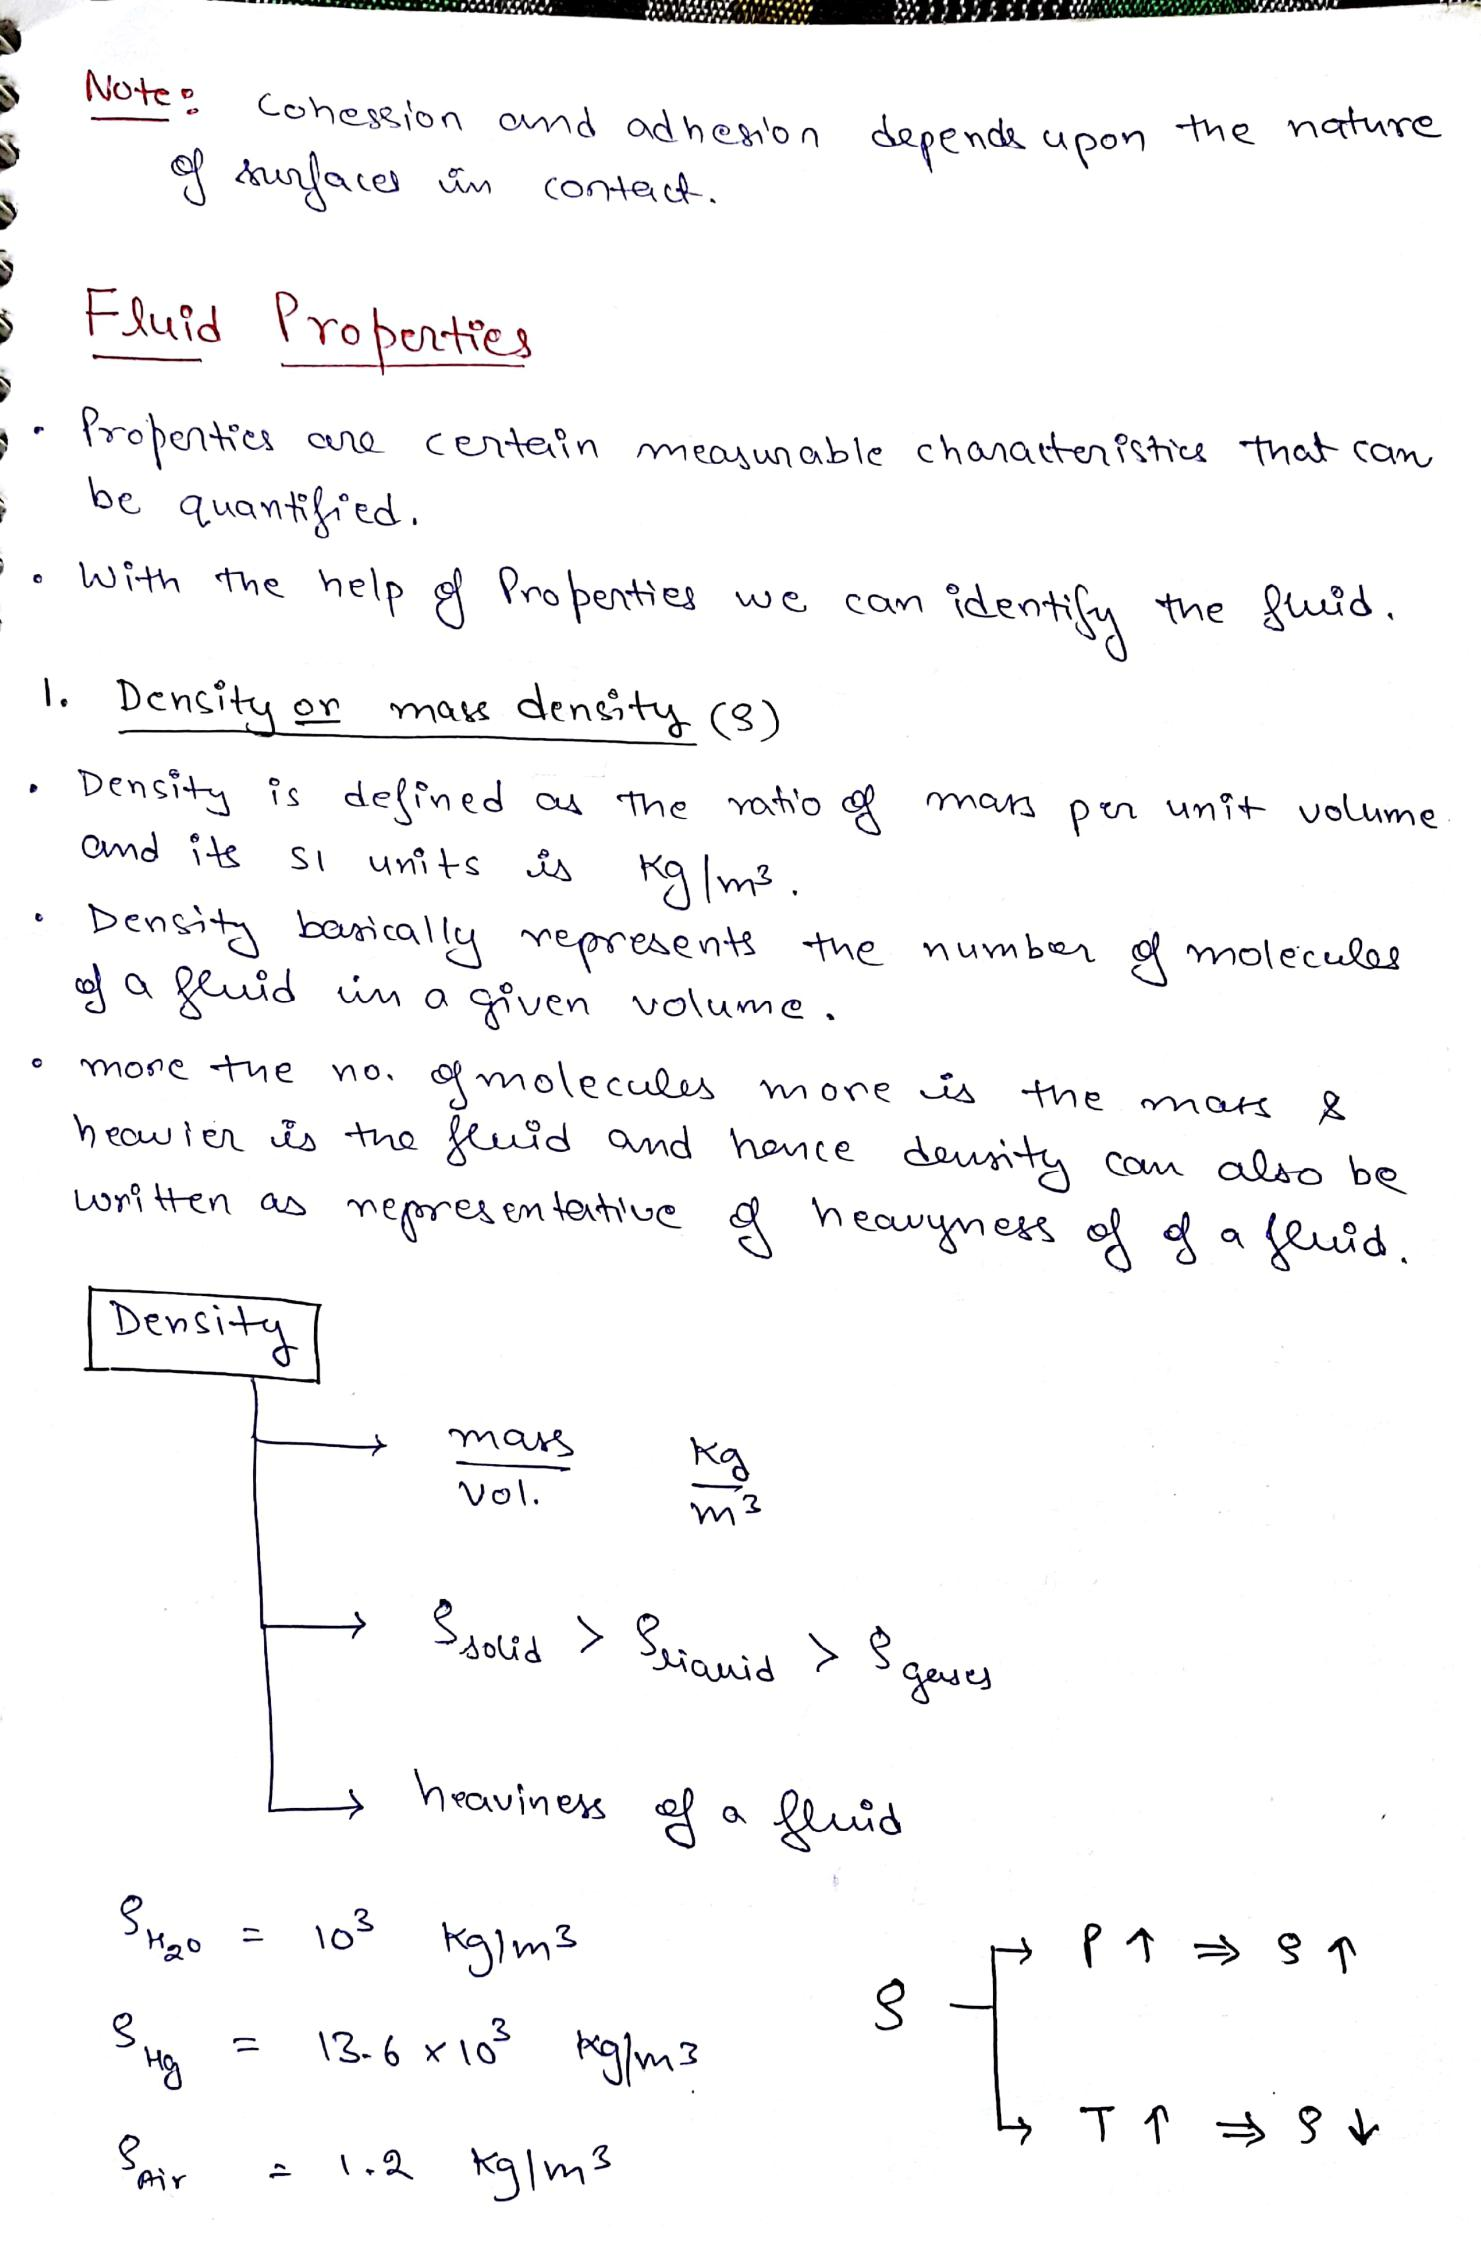 Note: Cohession and adhesion depends upon the nature
of surfaces in contact.
Fluid Properties
• Properties are certain measurable characteristics that can
be quantified.
• With the help of Properties we can identify the fluid.
1. Density or mass density (ρ)
• Density is defined as the ratio of mass per unit volume
and its SI units is Kg/m³.
• Density basically represents the number of molecules
of a fluid in a given volume.
• more the no. of molecules more is the mass &
heavier is the fluid and hence density can also be
written as representative of heavyness of of a fluid.
Density
→ mass/vol. Kg/m³
→ ρsolid > ρliquid > ρgases
→ heaviness of a fluid
ρH₂O = 10³ Kg/m³
ρ → P ↑ ⇒ ρ ↑
ρHg = 13.6 × 10³ Kg/m³
→ T ↑ ⇒ ρ ↓
ρAir = 1.2 Kg/m³